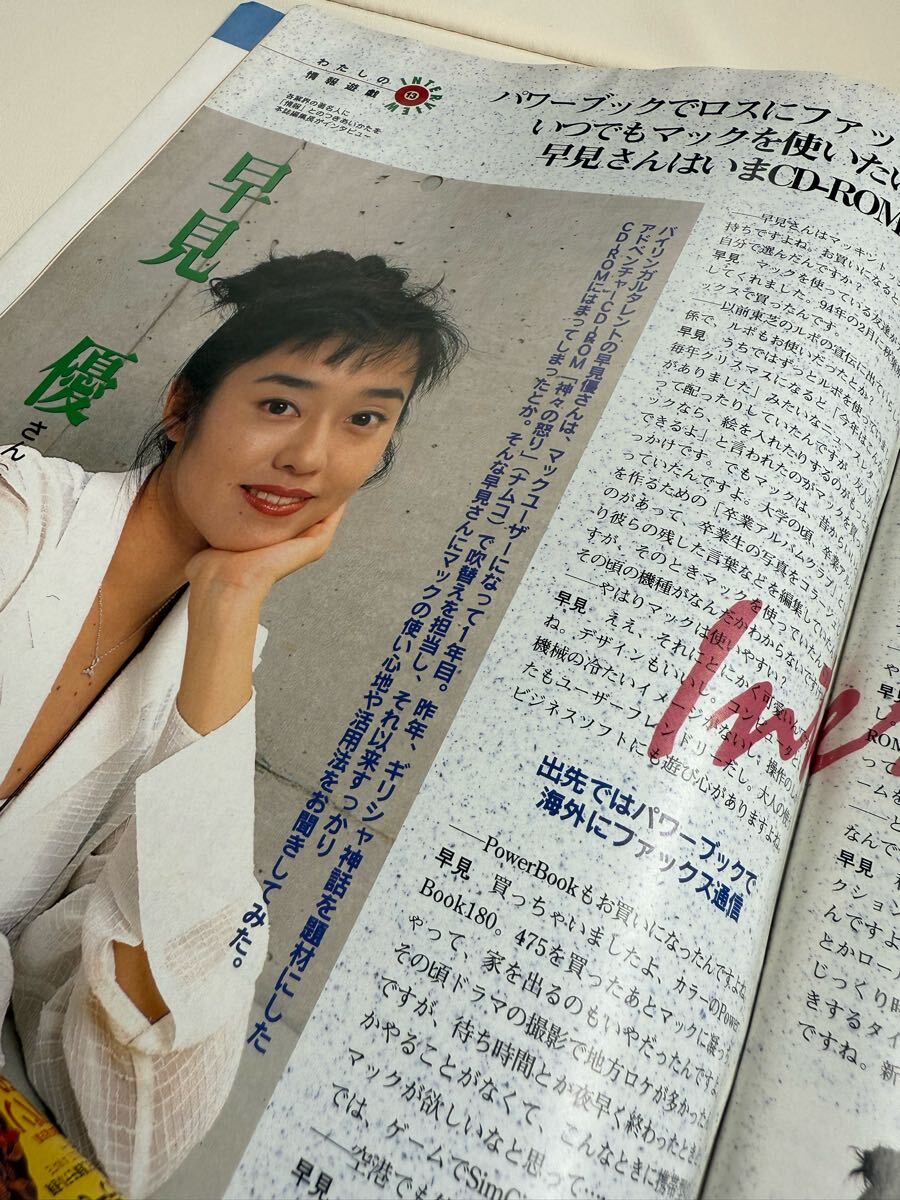 わたしの
情報遊戯
INTERVIEW
13
各業界の著名人に
「情報」とのつきあいかたを
本誌編集長がインタビュー
パワーブックでロスにファッ
いつでもマックを使いたい
早見さんはいまCD-ROM
早見
優
さん
バイリンガルタレントの早見優さんは、マックユーザーになって1年目。昨年、ギリシャ神話を題材にした
アドベンチャーCD-ROM「神々の怒り」(ナムコ)で吹替えを担当し、それ以来すっかり
CD-ROMにはまってしまったとか。そんな早見さんにマックの使い心地や活用法をお聞きしてみた。
——早見さんはマッキントッ
持ちですよね。お買いになると
自分で選んだんですか?
早見 マックを使っている友達が
してくれました。94年の2月に秋葉
ックスで買ったんです。
——以前東芝のルポの宣伝に出てい
係で、ルポもお使いだったとか?
早見 うちではずっとルポを使って
毎年クリスマスになると「今年はこんな
がありました」みたいなニュースレタ
って配ったりしていたんですが、友人に
ックなら、絵を入れたりするのがもっと
できるよ」と言われたのがマックを買
っかけです。でもマックは、昔から
っていたんですよ。大学の頃、卒業アル
を作るための「卒業アルバムクラブ」
のがあって、卒業生の写真をコラージュ
り彼らの残した言葉などを編集していた
すが、そのときマックを使っていたんで
その頃の機種がなんだかわからないですけ
——やはりマックは使いやすい?
早見 ええ、それにとにかく可愛いんです
ね。デザインもいいし。コンピュータと
機械の冷たいイメージがないし、操作のし
たもユーザーフレンドリーだし。大人の
ビジネスソフトにも遊び心がありますよね。
出先ではパワーブックで
海外にファックス通信
——PowerBookもお買いになったんですよね
早見 買っちゃいましたよ、カラーのPower
Book180。475を買ったあとマックに凝っち
ゃって、家を出るのもいやだったんですよ
その頃ドラマの撮影で地方ロケが多かった
ですが、待ち時間とか夜早く終わったとき
かやることがなくて、こんなときに携帯
マックが欲しいなと思って……
では、ゲームでSimCi
——空港でも
早見
Inte
早見
し。
ROM
って
ームを
——と
なんで
早見 私
クション
んですよ
とかロール
じっくり時
きするタイ
ですね。新